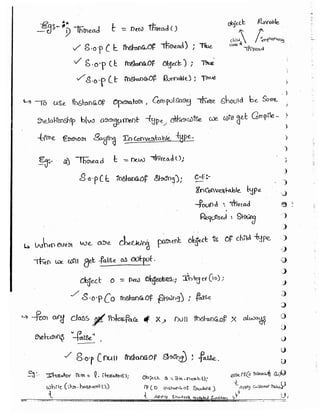 Object Runnable
child class implements
Thread
Eg:- 1) Thread t = new Thread()
S.o.p (t instanceof Thread) ; True
S.o.p (t instanceof Object) ; True
S.o.p (t instanceof Runnable) ; True
↳ To use instanceof operator, Compulsory there should be some
relationship b/w argument type, otherwise we will get Compile-
time error saying Inconvertable type.
Eg:- a) Thread t = new Thread();
S.o.p(t instanceof String); C.E:-
Inconvertable type
found : Thread
Required : String
↳ Whenever we are checking parent object is of child type
Then we will get false as output.
Object o = new Integer(10);
S.o.p (o instanceof String) ; false
↳ For any class Interface X, null instanceof X always
returns "false".
S.o.p (null instanceof String) : false.
Eg: Iterator itr = l.iterator();
while (itr.hasNext())
{
Object o = itr.next();
if (o instanceof Student)
{
apply Student related function
else if(o instanceof
{
apply Customer